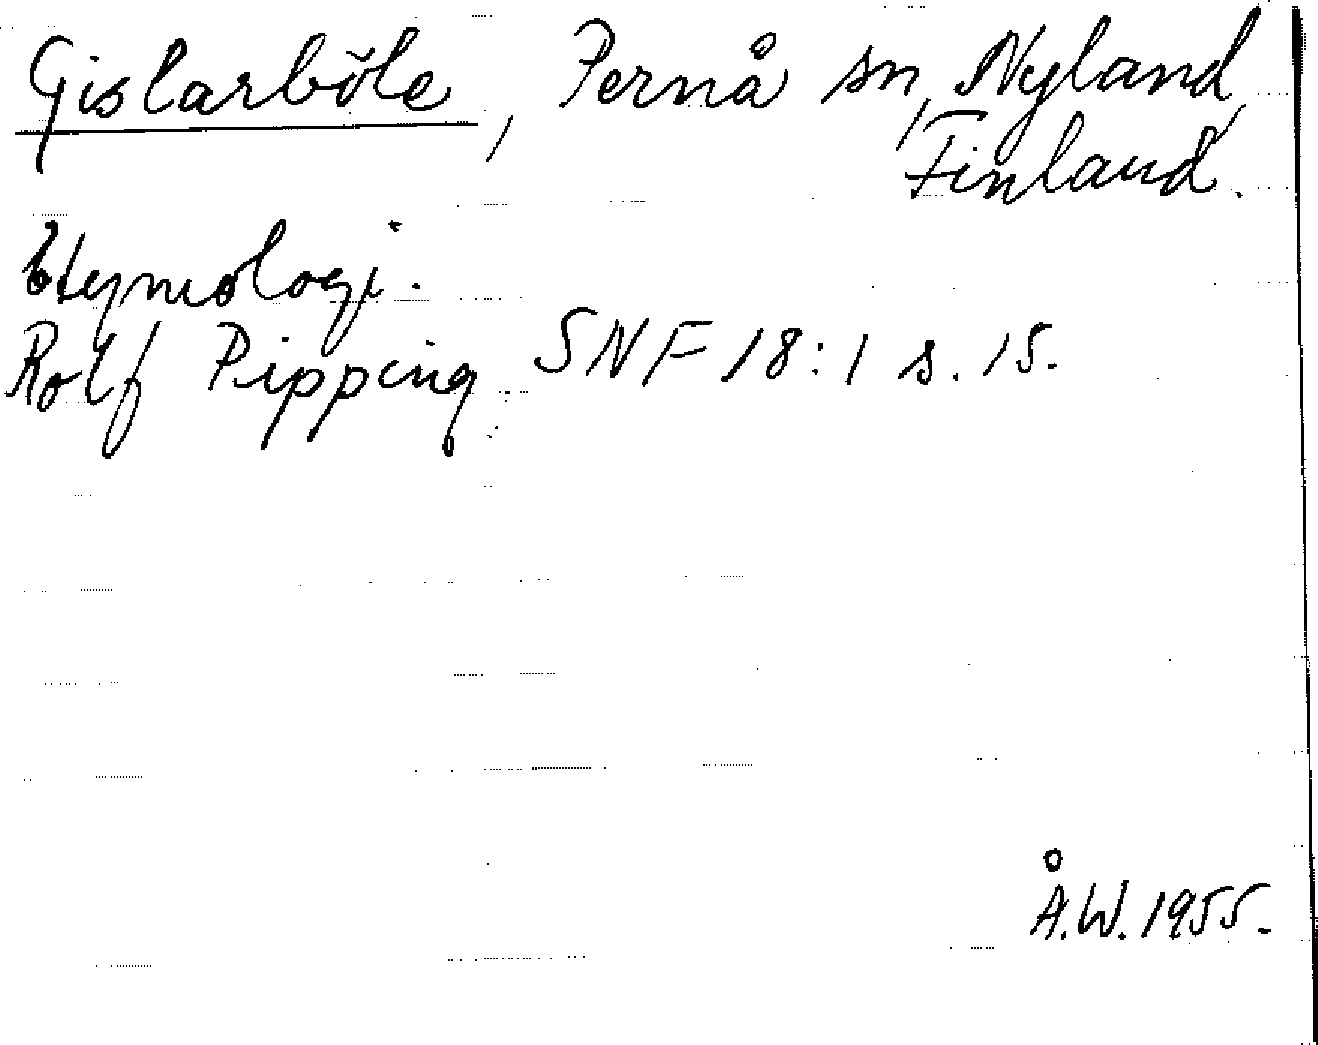 Gislarböle, Pernå sn, Nyland,
Finland.
Etymologi.
Rolf Pipping SNF 18:1 s. 15.
Å.W. 1955.